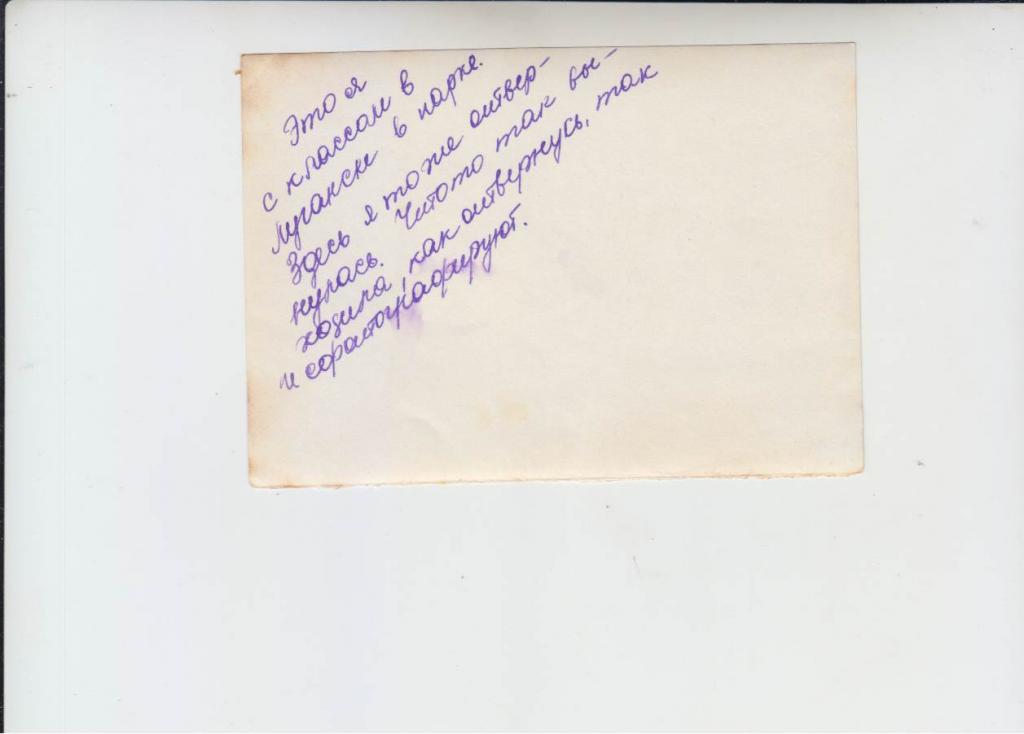 Это я
с классом в
Луганске в парке.
Здесь я тоже отвер-
нулась. Чтото так вы-
ходила, как отвернусь, так
и сфотографируют.